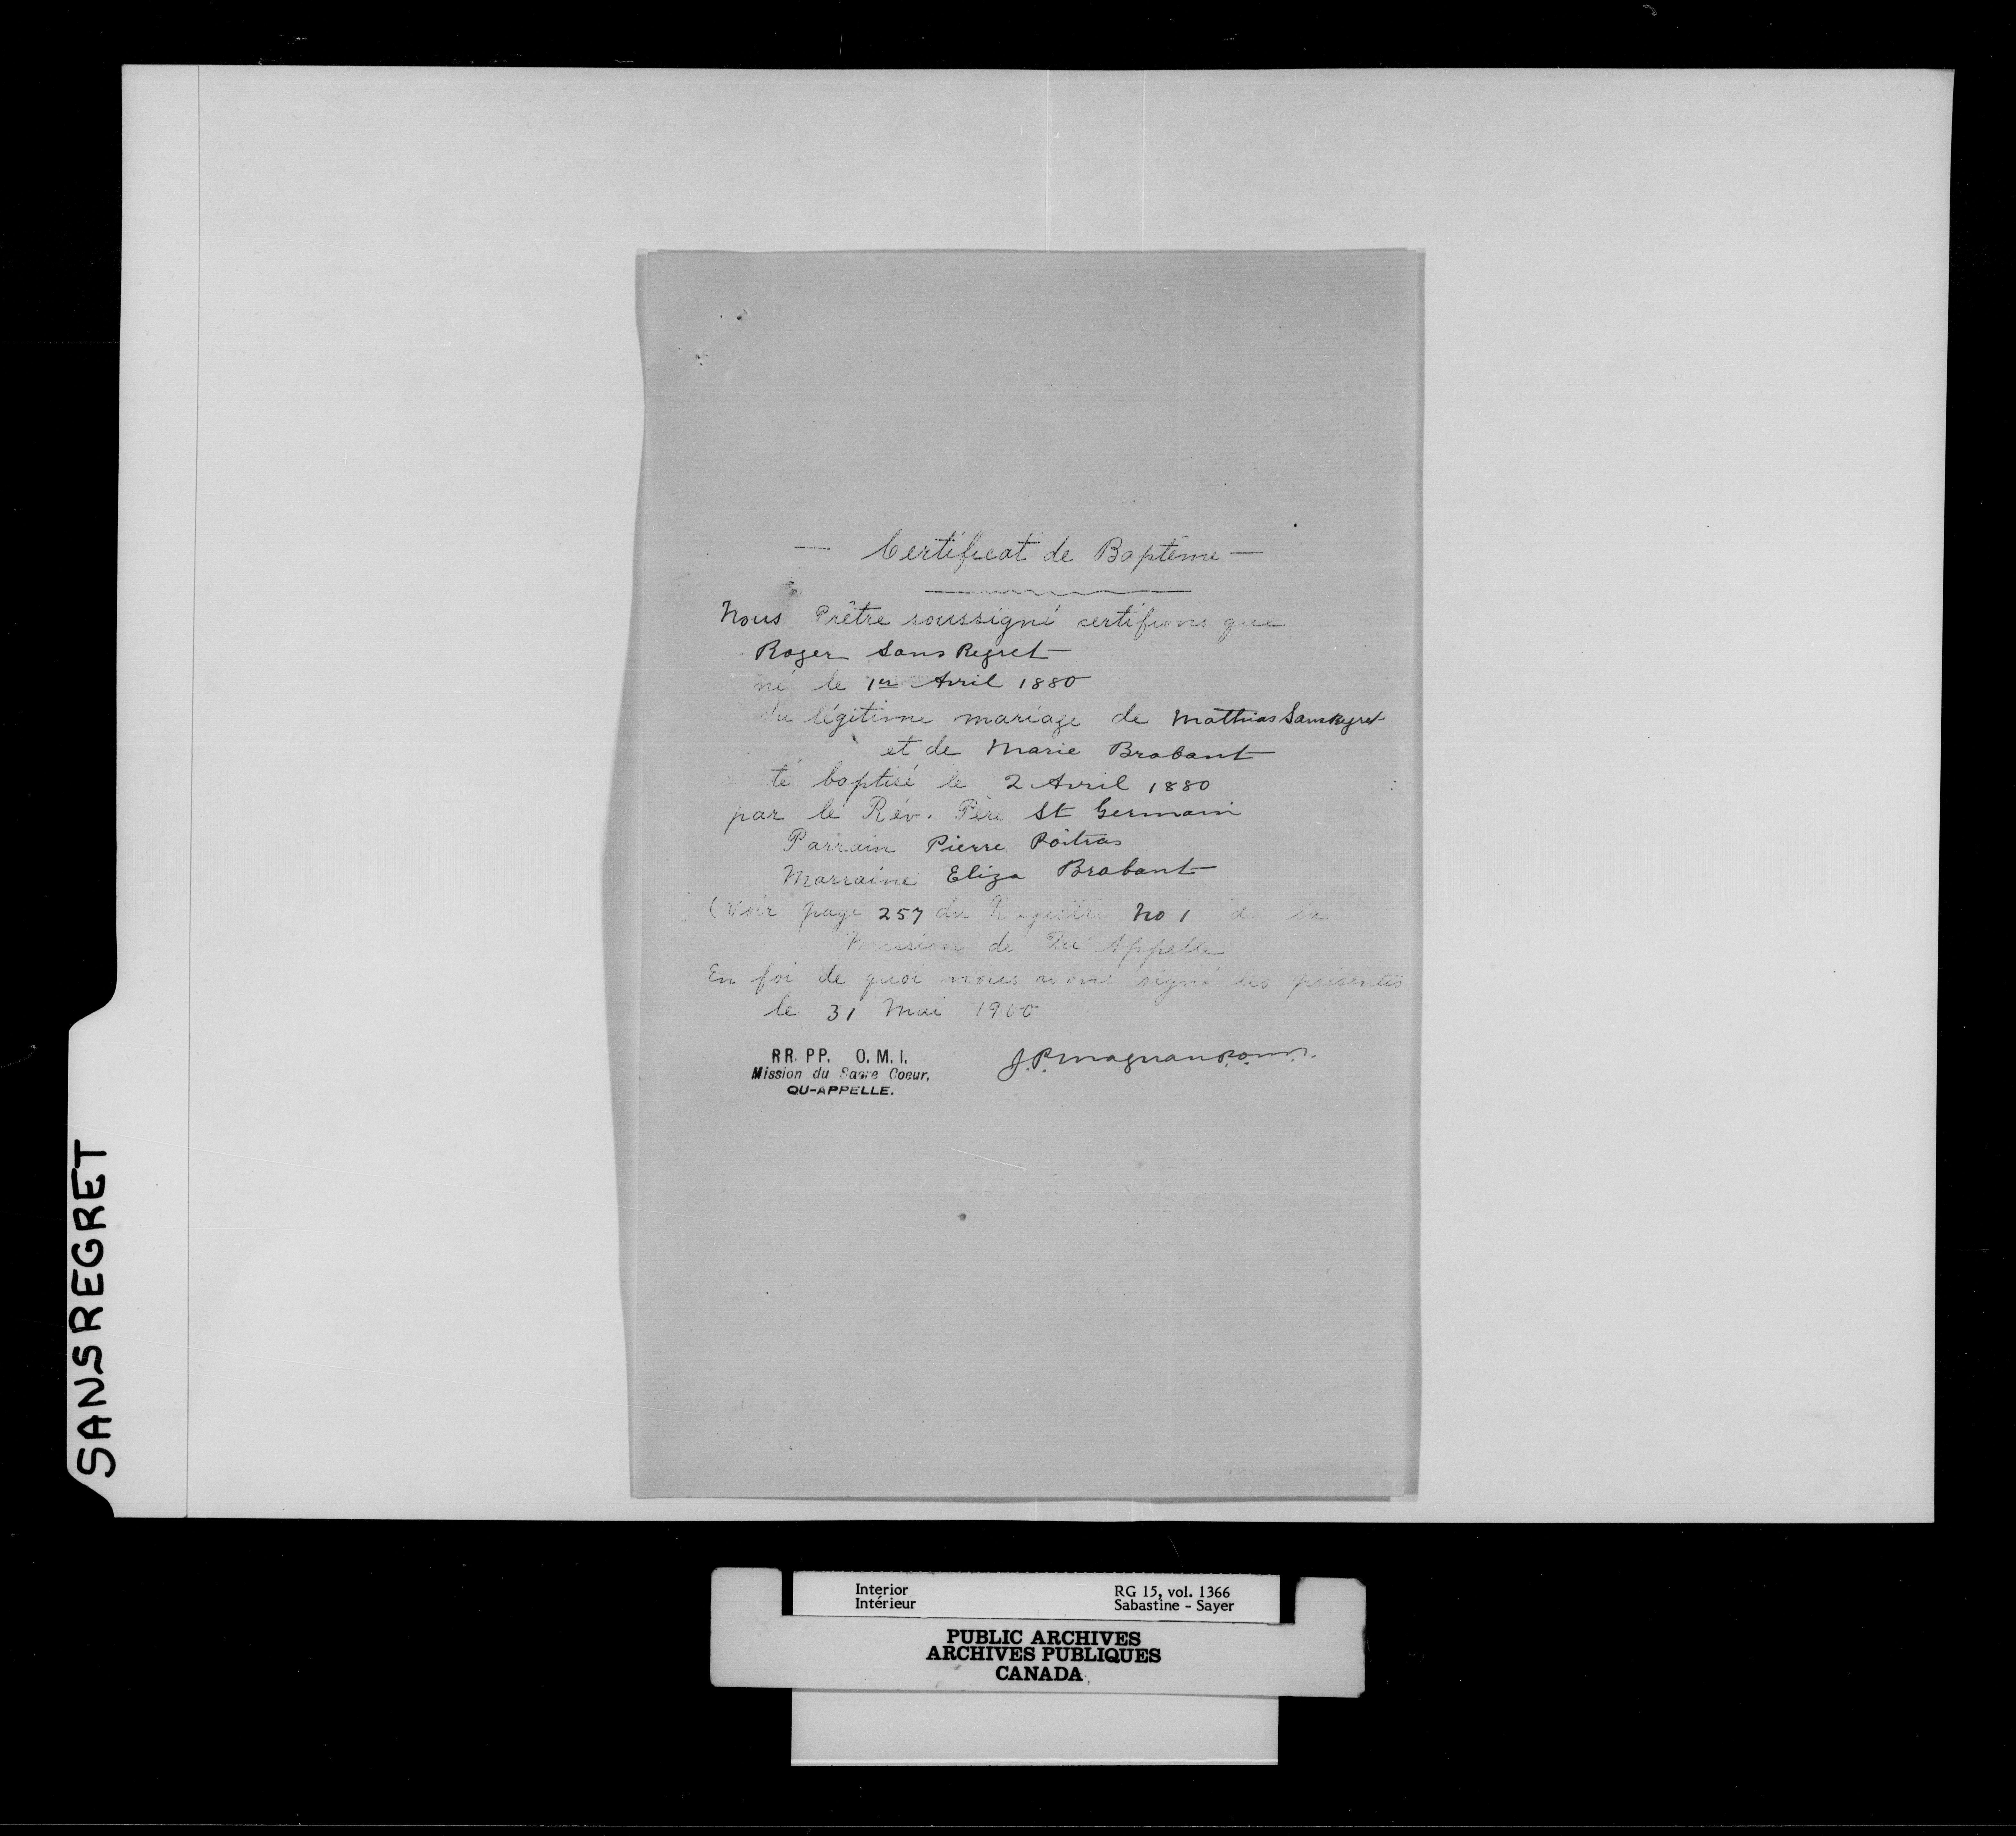 — Certificat de Baptême —
Nous Prêtre soussigné certifions que
Roger Sans Regret
né le 1er Avril 1880
du légitime mariage de Matthias SansRegret
et de Marie Brabant
té baptisé le 2 Avril 1880
par le Rév. Père St Germain
Parrain Pierre Poitras
Marraine Eliza Brabant
(Voir page 257 du Registre No 1 de la
Mission de Qu'Appelle
En foi de quoi nous avons signé les présentes
le 31 Mai 1900
RR. PP. O. M. I.
Mission du Sacre Coeur,
QU-APPELLE.
J. P. Magnan p.o.m.i.
SANSREGRET
Interior
Intérieur
RG 15, vol. 1366
Sabastine - Sayer
PUBLIC ARCHIVES
ARCHIVES PUBLIQUES
CANADA